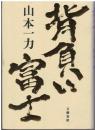 背負い
富士
山本一力
文藝春秋